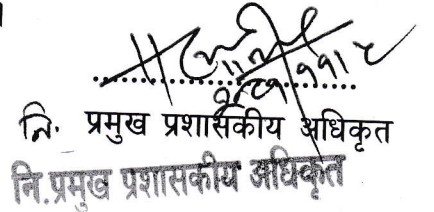 नि. प्रमुख प्रशासकीय अधिकृत
नि.प्रमुख प्रशासकीय अधिकृत